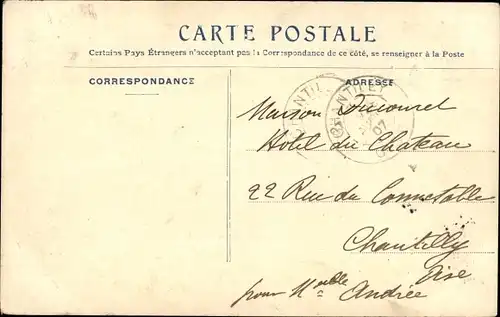 CARTE POSTALE
Certains Pays Étrangers n'acceptant pas la Correspondance de ce côté, se renseigner à la Poste
CORRESPONDANCE
ADRESSE
CHANTILLY
07
Maison Ducourel
Hotel du Chateau
22 Rue du Connetable
Chantilly
Oise
pour Andrée